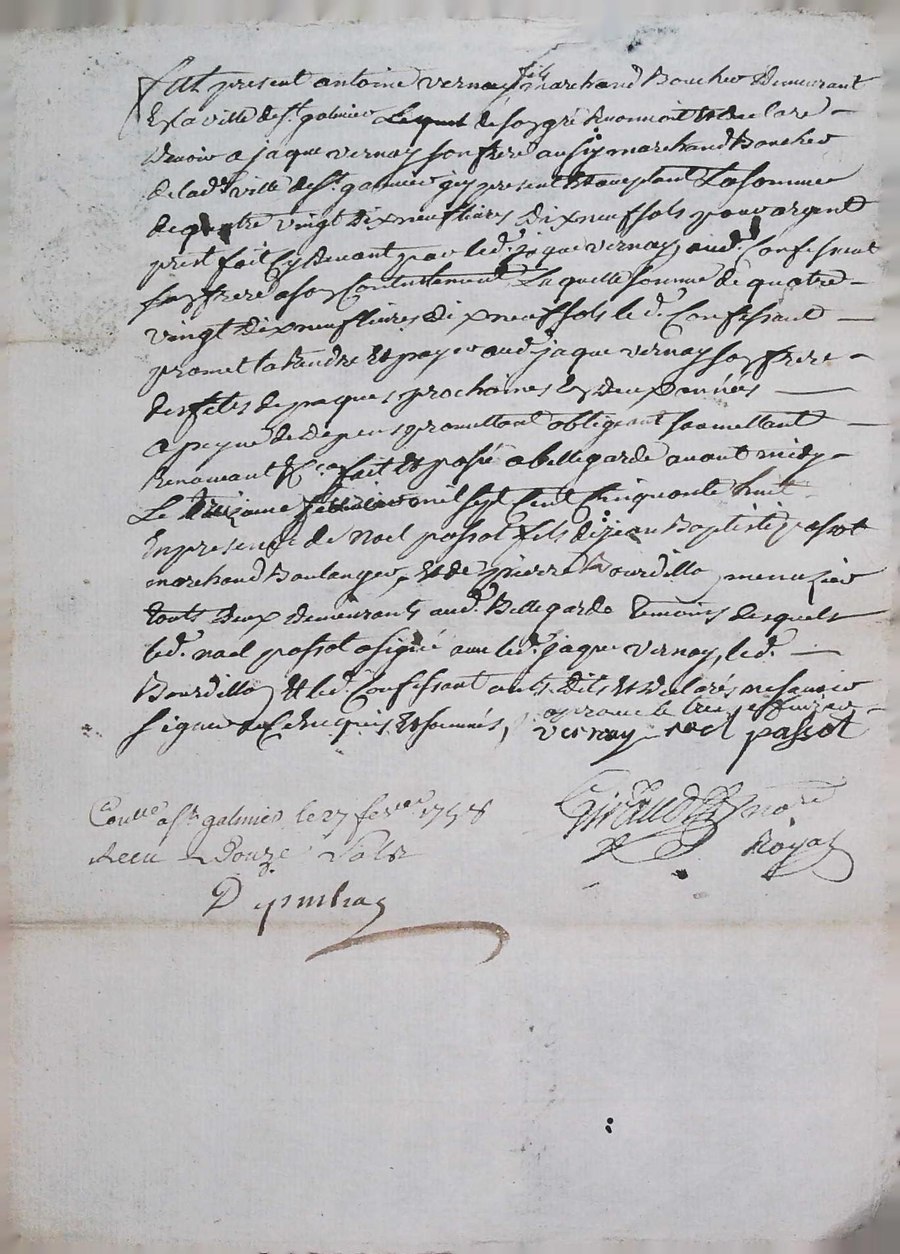 fut present antoine vernay fils marchand Boucher Demeurant
En la ville de st. galmier Lequel de son gré Reconnoit Et declare
Devoir a jaque vernay son frere aussy marchand Boucher
de lad. ville de st. galmier icy present Et aceptant La somme
de quatre vingt Dix neuf livres Dix neuf sols pour argent
prest fait Cy devant par led. jaque vernay aud. Confessant
son frere a son Contentement Laquelle somme de quatre
vingt Dix neuf livres Dix neuf sols led. Confessant
promet la Rendre Et payer aud. jaque vernay son frere
des fetes de paques prochaines En Deux années
a peyne de Depens promettant obligeant soumettant
Renoncant &ca fait Et passé a bellegarde avant midy
Le fevrier mil sept Cent Cinquante huit
En presence de Noel passot fils de jean Baptiste passot
marchand Boulanger Et de pierre Bourdillon menuzier
touts Deux Demeurants aud. Bellegarde temoins desquels
led. noel passot a signé avec led. jaque vernay, led.
Bourdillon Et led. Confessant ont Dits Et Declarés ne savoir
signer de Ce Enquis Et sommés,
vernay noel passot
Conllé a st. galmier le 27 fevrier 1758
Recu Douze Sols
Giraud nore
Royal